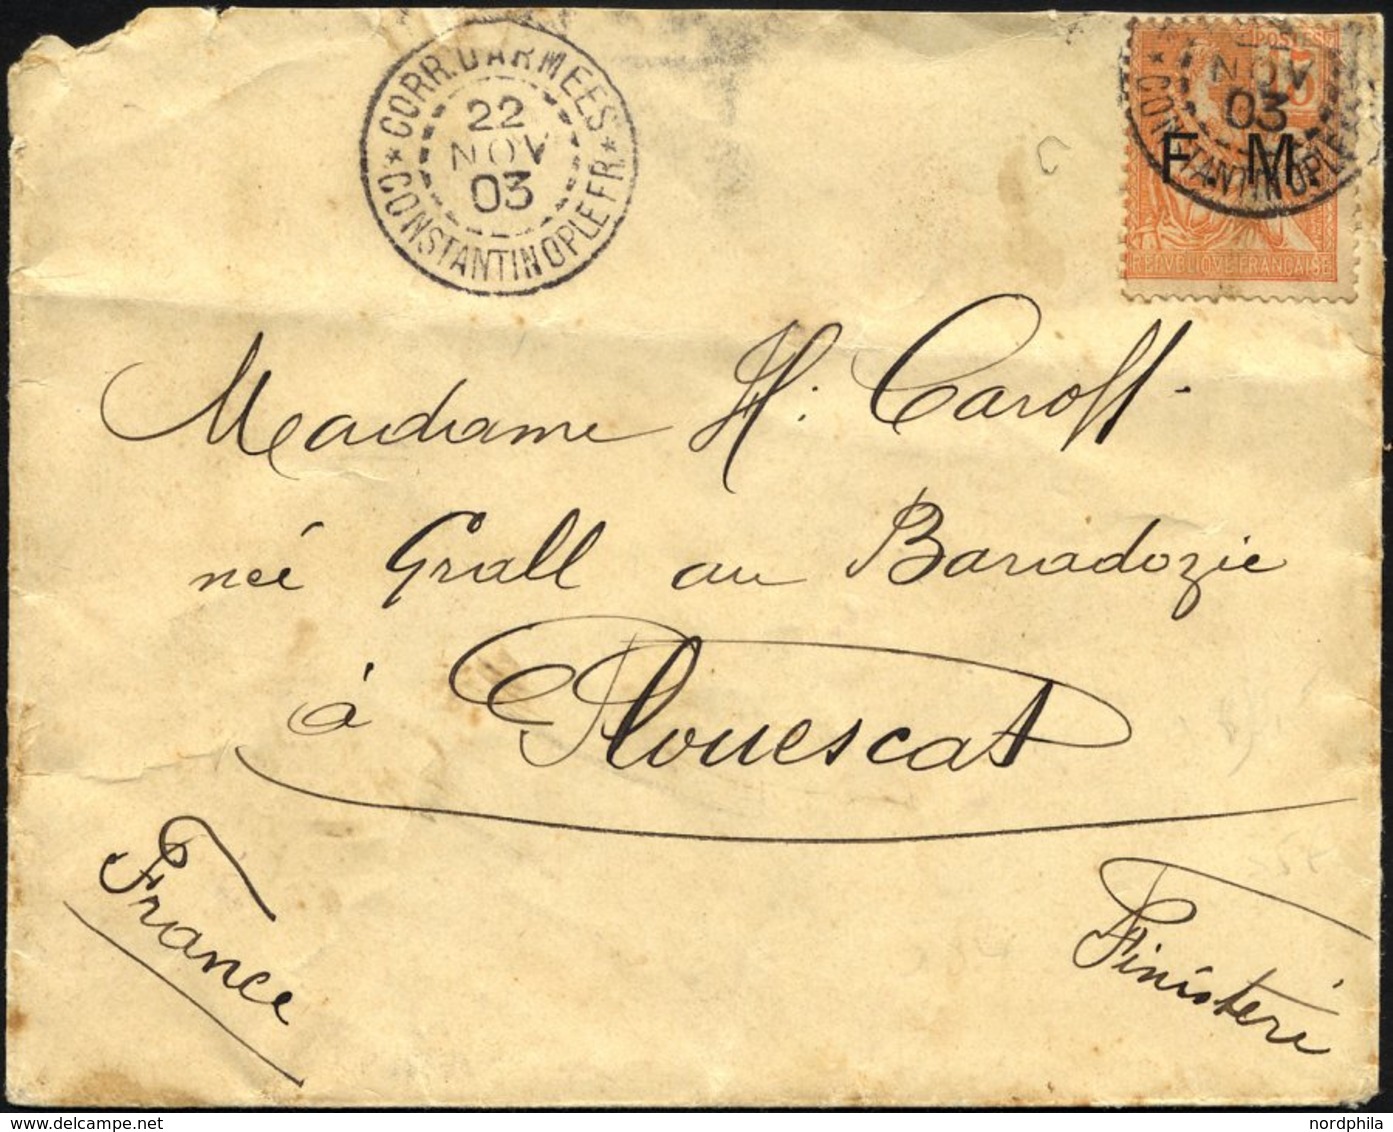 CORR. D'ARMEES
22
NOV
03
CONSTANTINOPLE FR.
POSTES
15
NOV
03
CONSTANTINOPLE FR
F. M.
REPVBLIQVE FRANÇAISE
Madame H. Caroff
née Grall au Baradozic
à Plouescat
France
Finistère
nordphila